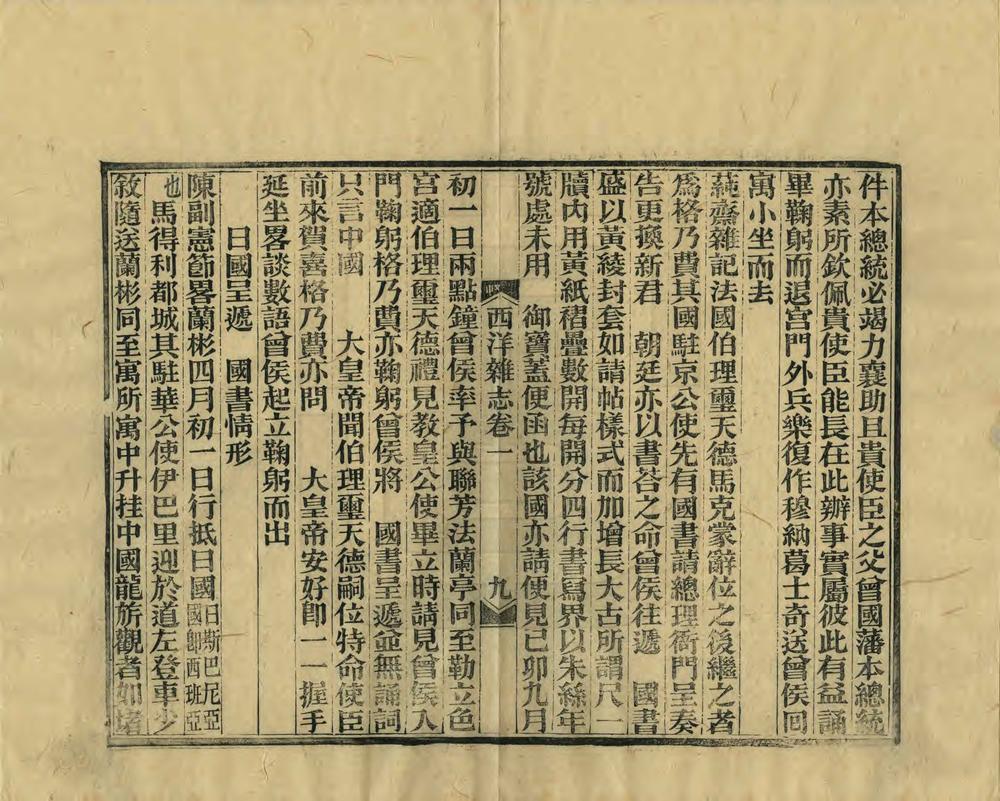 件本總統必竭力襄助且貴使臣之父曾國藩本總統
亦素所欽佩貴使臣能長在此辦事實屬彼此有益誦
畢鞠躬而退宮門外兵樂復作穆納葛士奇送曾侯回
寓小坐而去
蒓齋雜記法國伯理璽天德馬克蒙辭位之後繼之者
爲格乃費其國駐京公使先有國書請總理衙門呈奏
告更換新君　朝廷亦以書答之命曾侯往遞　國書
盛以黃綾封套如請帖樣式而加增長大古所謂尺一
牘內用黃紙褶疊數開每開分四行書寫界以朱絲年
號處未用　御寶蓋便函也該國亦請便見已卯九月
西洋雜志卷一　九
初一日兩點鐘曾侯率予與聯芳法蘭亭同至勒立色
宮適伯理璽天德禮見教皇公使畢立時請見曾侯入
門鞠躬格乃費亦鞠躬曾侯將　國書呈遞並無誦詞
只言中國　大皇帝聞伯理璽天德嗣位特命使臣
前來賀喜格乃費亦問　大皇帝安好卽一一握手
延坐畧談數語曾侯起立鞠躬而出
日國呈遞　國書情形
陳副憲節畧蘭彬四月初一日行抵日國日斯巴尼亞國卽西班亞
也馬得利都城其駐華公使伊巴里迎於道左登車少
敘隨送蘭彬同至寓所寓中升挂中國龍旂觀者如堵